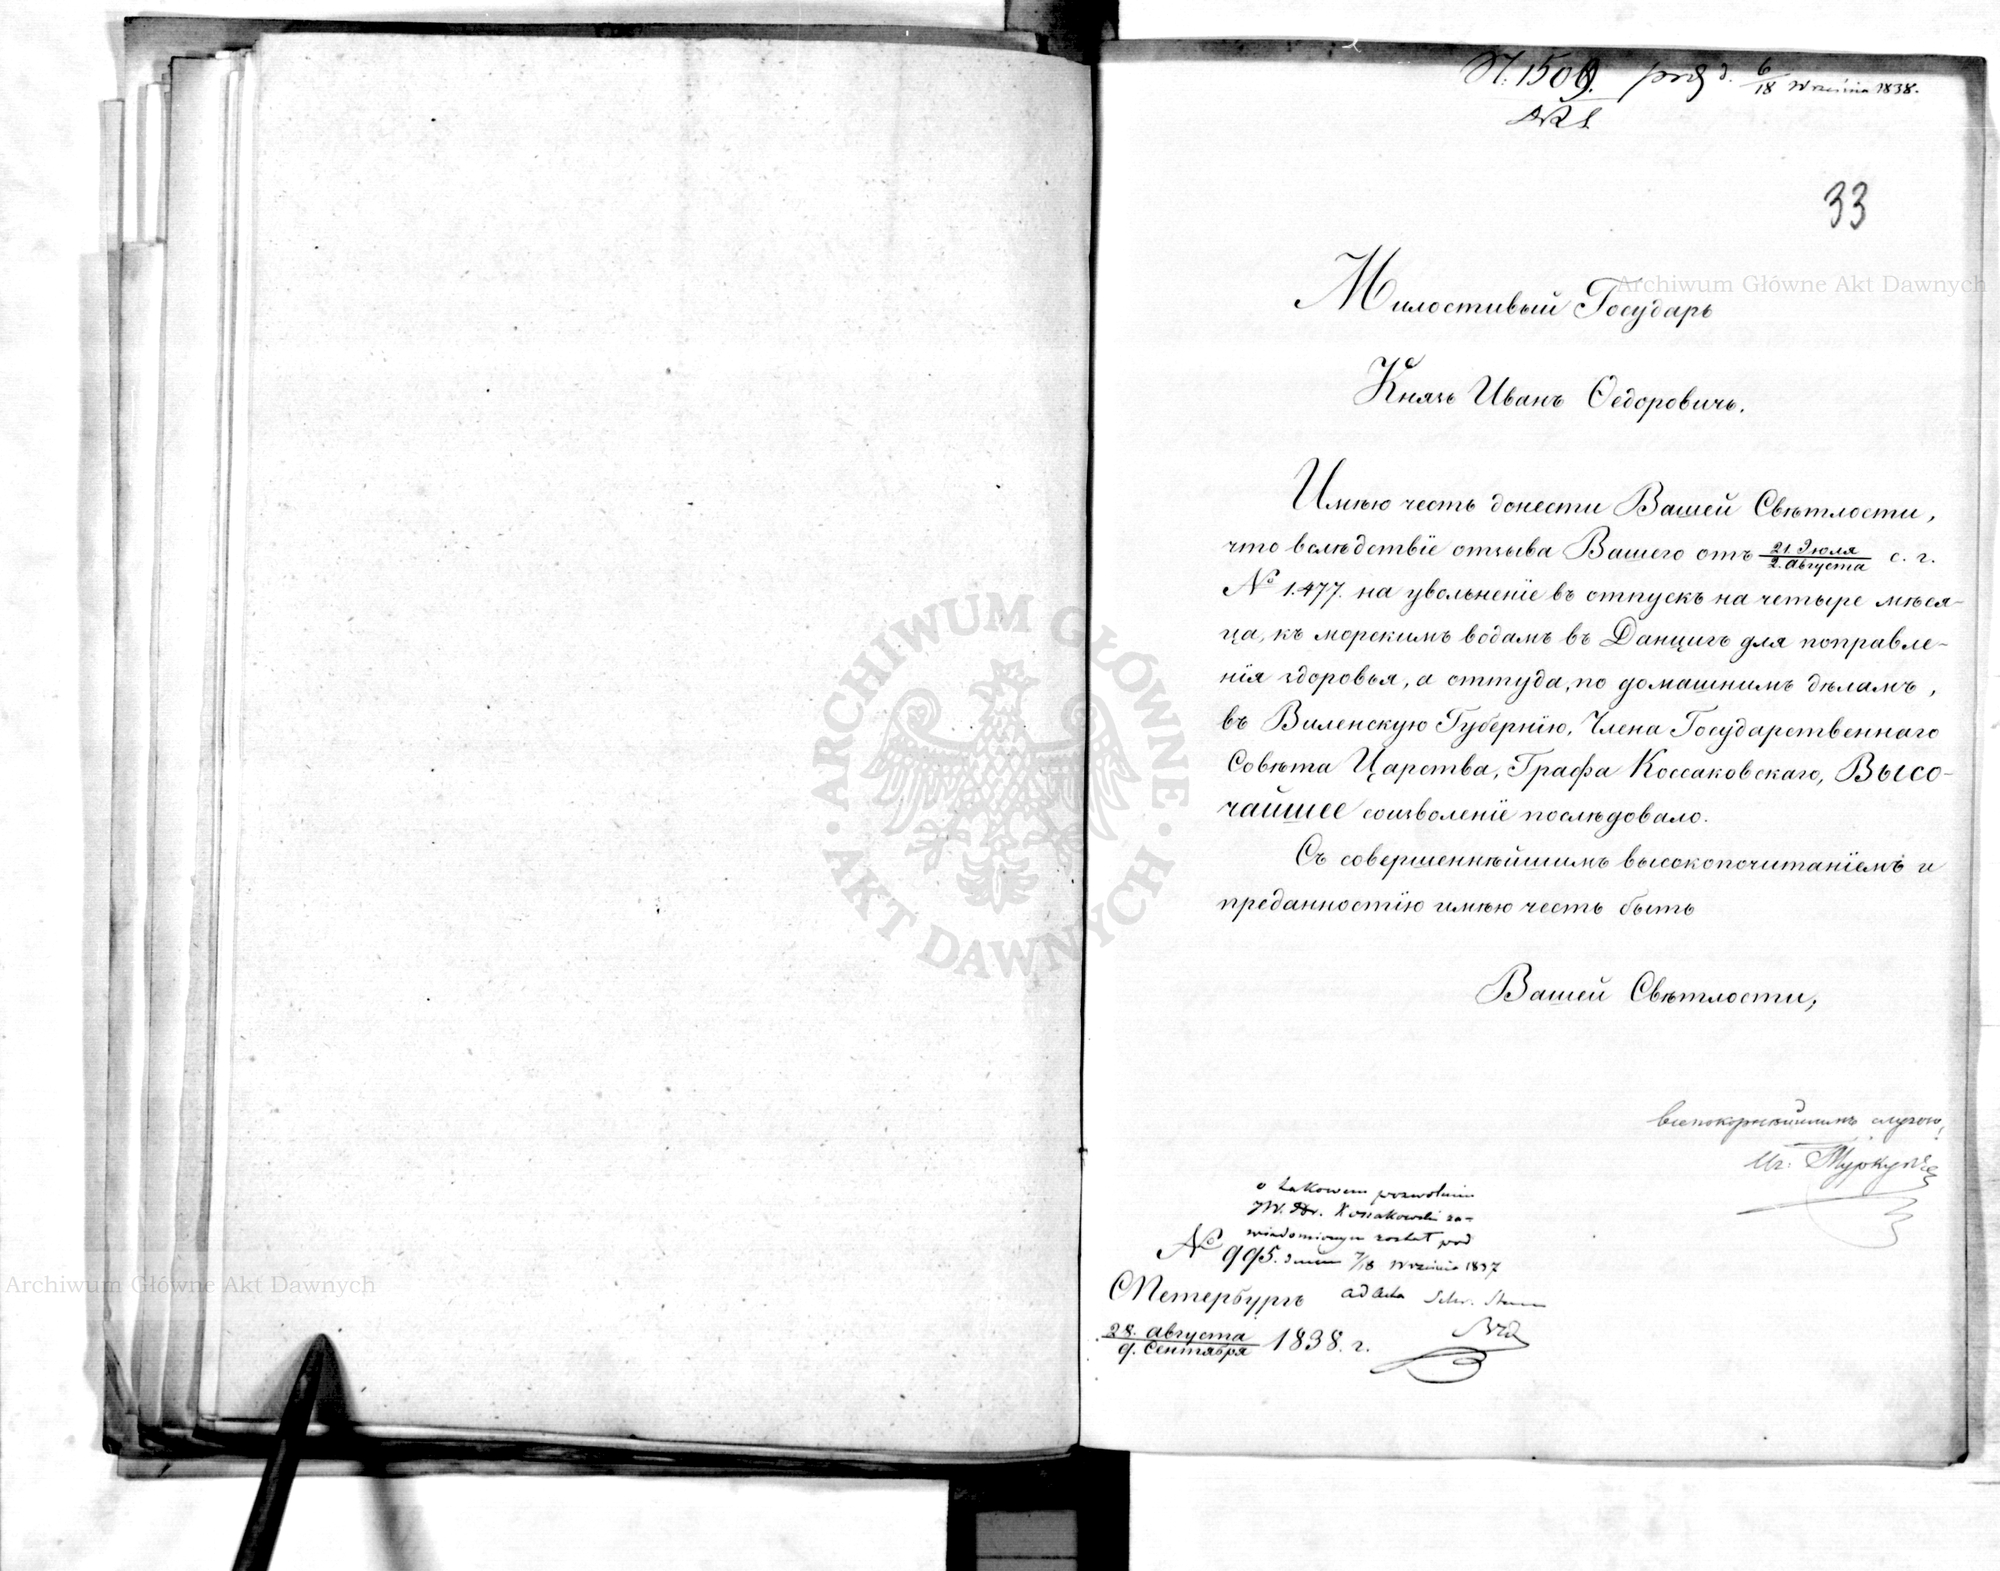 N. 1509. d. 6/18 Września 1838.
33
Милостивый Государь
Князь Иванъ Ѳедоровичь.
Имѣю честь донести Вашей Свѣтлости,
что вслѣдствіе отзыва Вашего отъ 21. Іюля/2. Августа с. г.
№ 1.477. на увольненіе въ отпускъ на четыре мѣся-
ца, къ морскимъ водамъ въ Данцигъ для поправле-
нія здоровья, а оттуда, по домашнимъ дѣламъ,
въ Виленскую Губернію, Члена Государственнаго
Совѣта Царства, Графа Коссаковскаго, Высо-
чайшее соизволеніе послѣдовало.
Съ совершеннѣйшимъ высокопочитаніемъ и
преданностію имѣю честь быть
Вашей Свѣтлости,
всепокорнѣйшимъ слугою,
Иг: Туркулъ
o takowem pozwoleniu
JW. Hr. Kossakowski za-
wiadomionym został pod
№ 995. dniem 7/18 Września 1837
СПетербургъ
ad acta
28. Августа/9. Сентября 1838. г.
Archiwum Główne Akt Dawnych
ARCHIWUM GŁÓWNE AKT DAWNYCH
Archiwum Główne Akt Dawnych